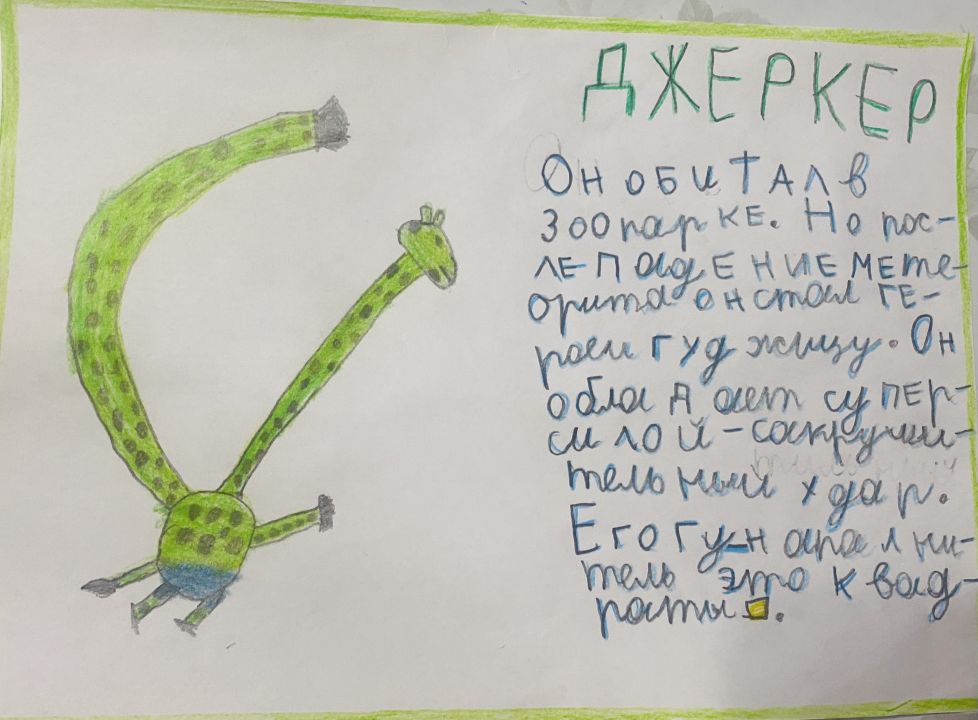 ДЖЕРКЕР
Он обитал в
зоопарке. Но пос-
ле падение мете-
орита он стал ге-
роем гуджицу. Он
обладает супер-
силой - сокручи-
тельный удар.
Его гу-нарални-
тель это квад-
раты.